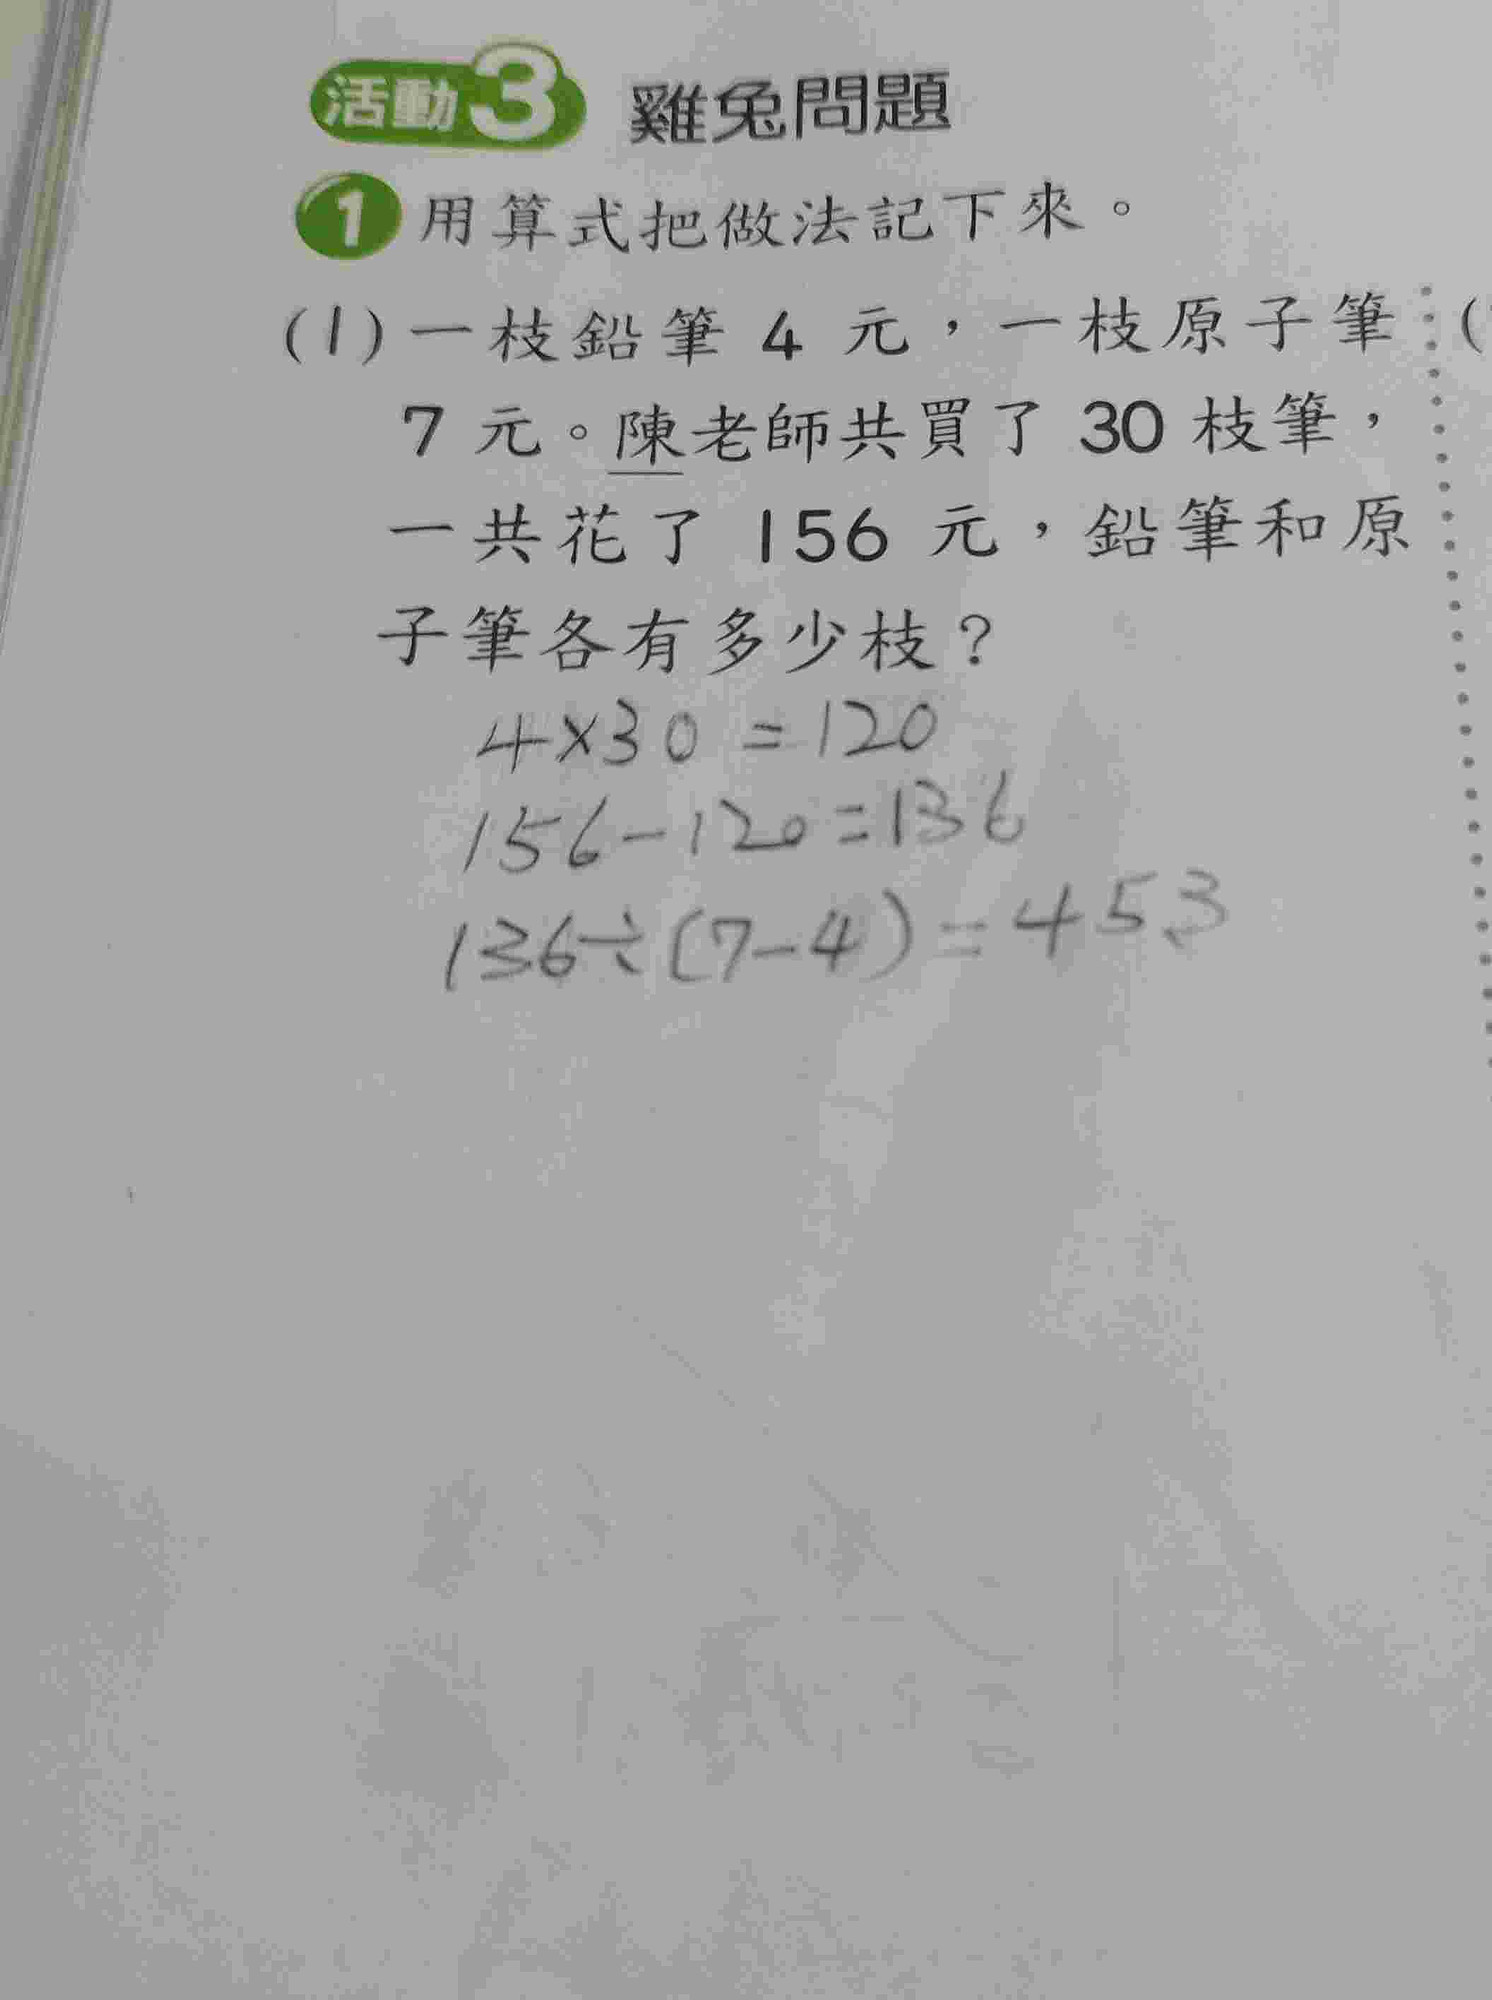 活動3 雞兔問題
1 用算式把做法記下來。
(1) 一枝鉛筆 4 元，一枝原子筆
7 元。陳老師共買了 30 枝筆，
一共花了 156 元，鉛筆和原
子筆各有多少枝？
4×30=120
156-120=136
136÷(7-4)=45.3